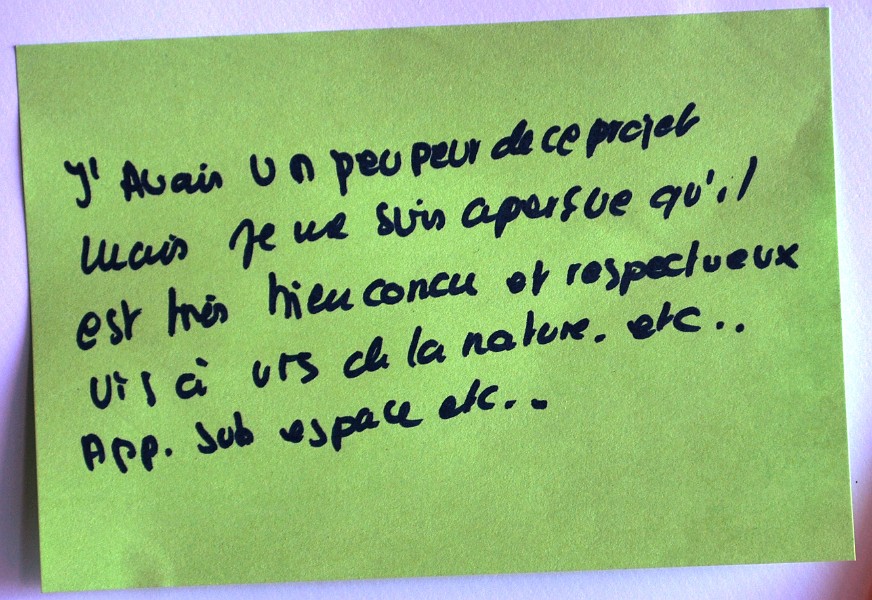 J'Avais un peu peur de ce projet
mais je me suis aperçue qu'il
est très bien concu et respectueux
vis à vis de la nature. etc..
App. sub espace etc..